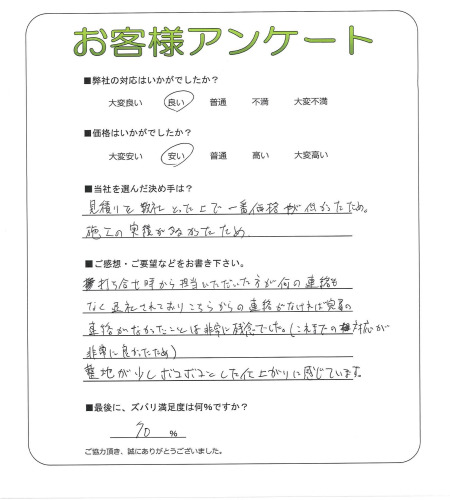 お客様アンケート
■弊社の対応はいかがでしたか？
大変良い 良い 普通 不満 大変不満
■価格はいかがでしたか？
大変安い 安い 普通 高い 大変高い
■当社を選んだ決め手は？
見積りを数社とった上で一番価格が低かったため。
施工の実績が多かったため
■ご感想・ご要望などをお書き下さい。
打ち合せ時から担当いただいた方が何の連絡も
なく退社されておりこちらからの連絡がなければ実質の
連絡がなかったことは非常に残念でした。(これまでの対応が
非常に良かったため)
整地が少しボコボコとした仕上がりに感じています。
■最後に、ズバリ満足度は何%ですか？
70 %
ご協力頂き、誠にありがとうございました。